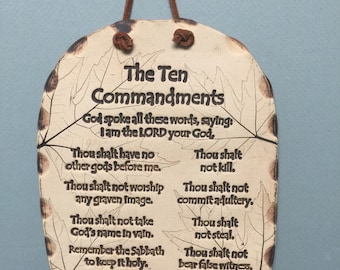 The Ten
Commandments
God spoke all these words, saying:
I am the LORD your God.
Thou shalt have no
other gods before me.
Thou shalt not worship
any graven image.
Thou shalt not take
God's name in vain.
Remember the Sabbath
to keep it holy.
Thou shalt
not kill.
Thou shalt not
commit adultery.
Thou shalt
not steal.
Thou shalt not
bear false witness.